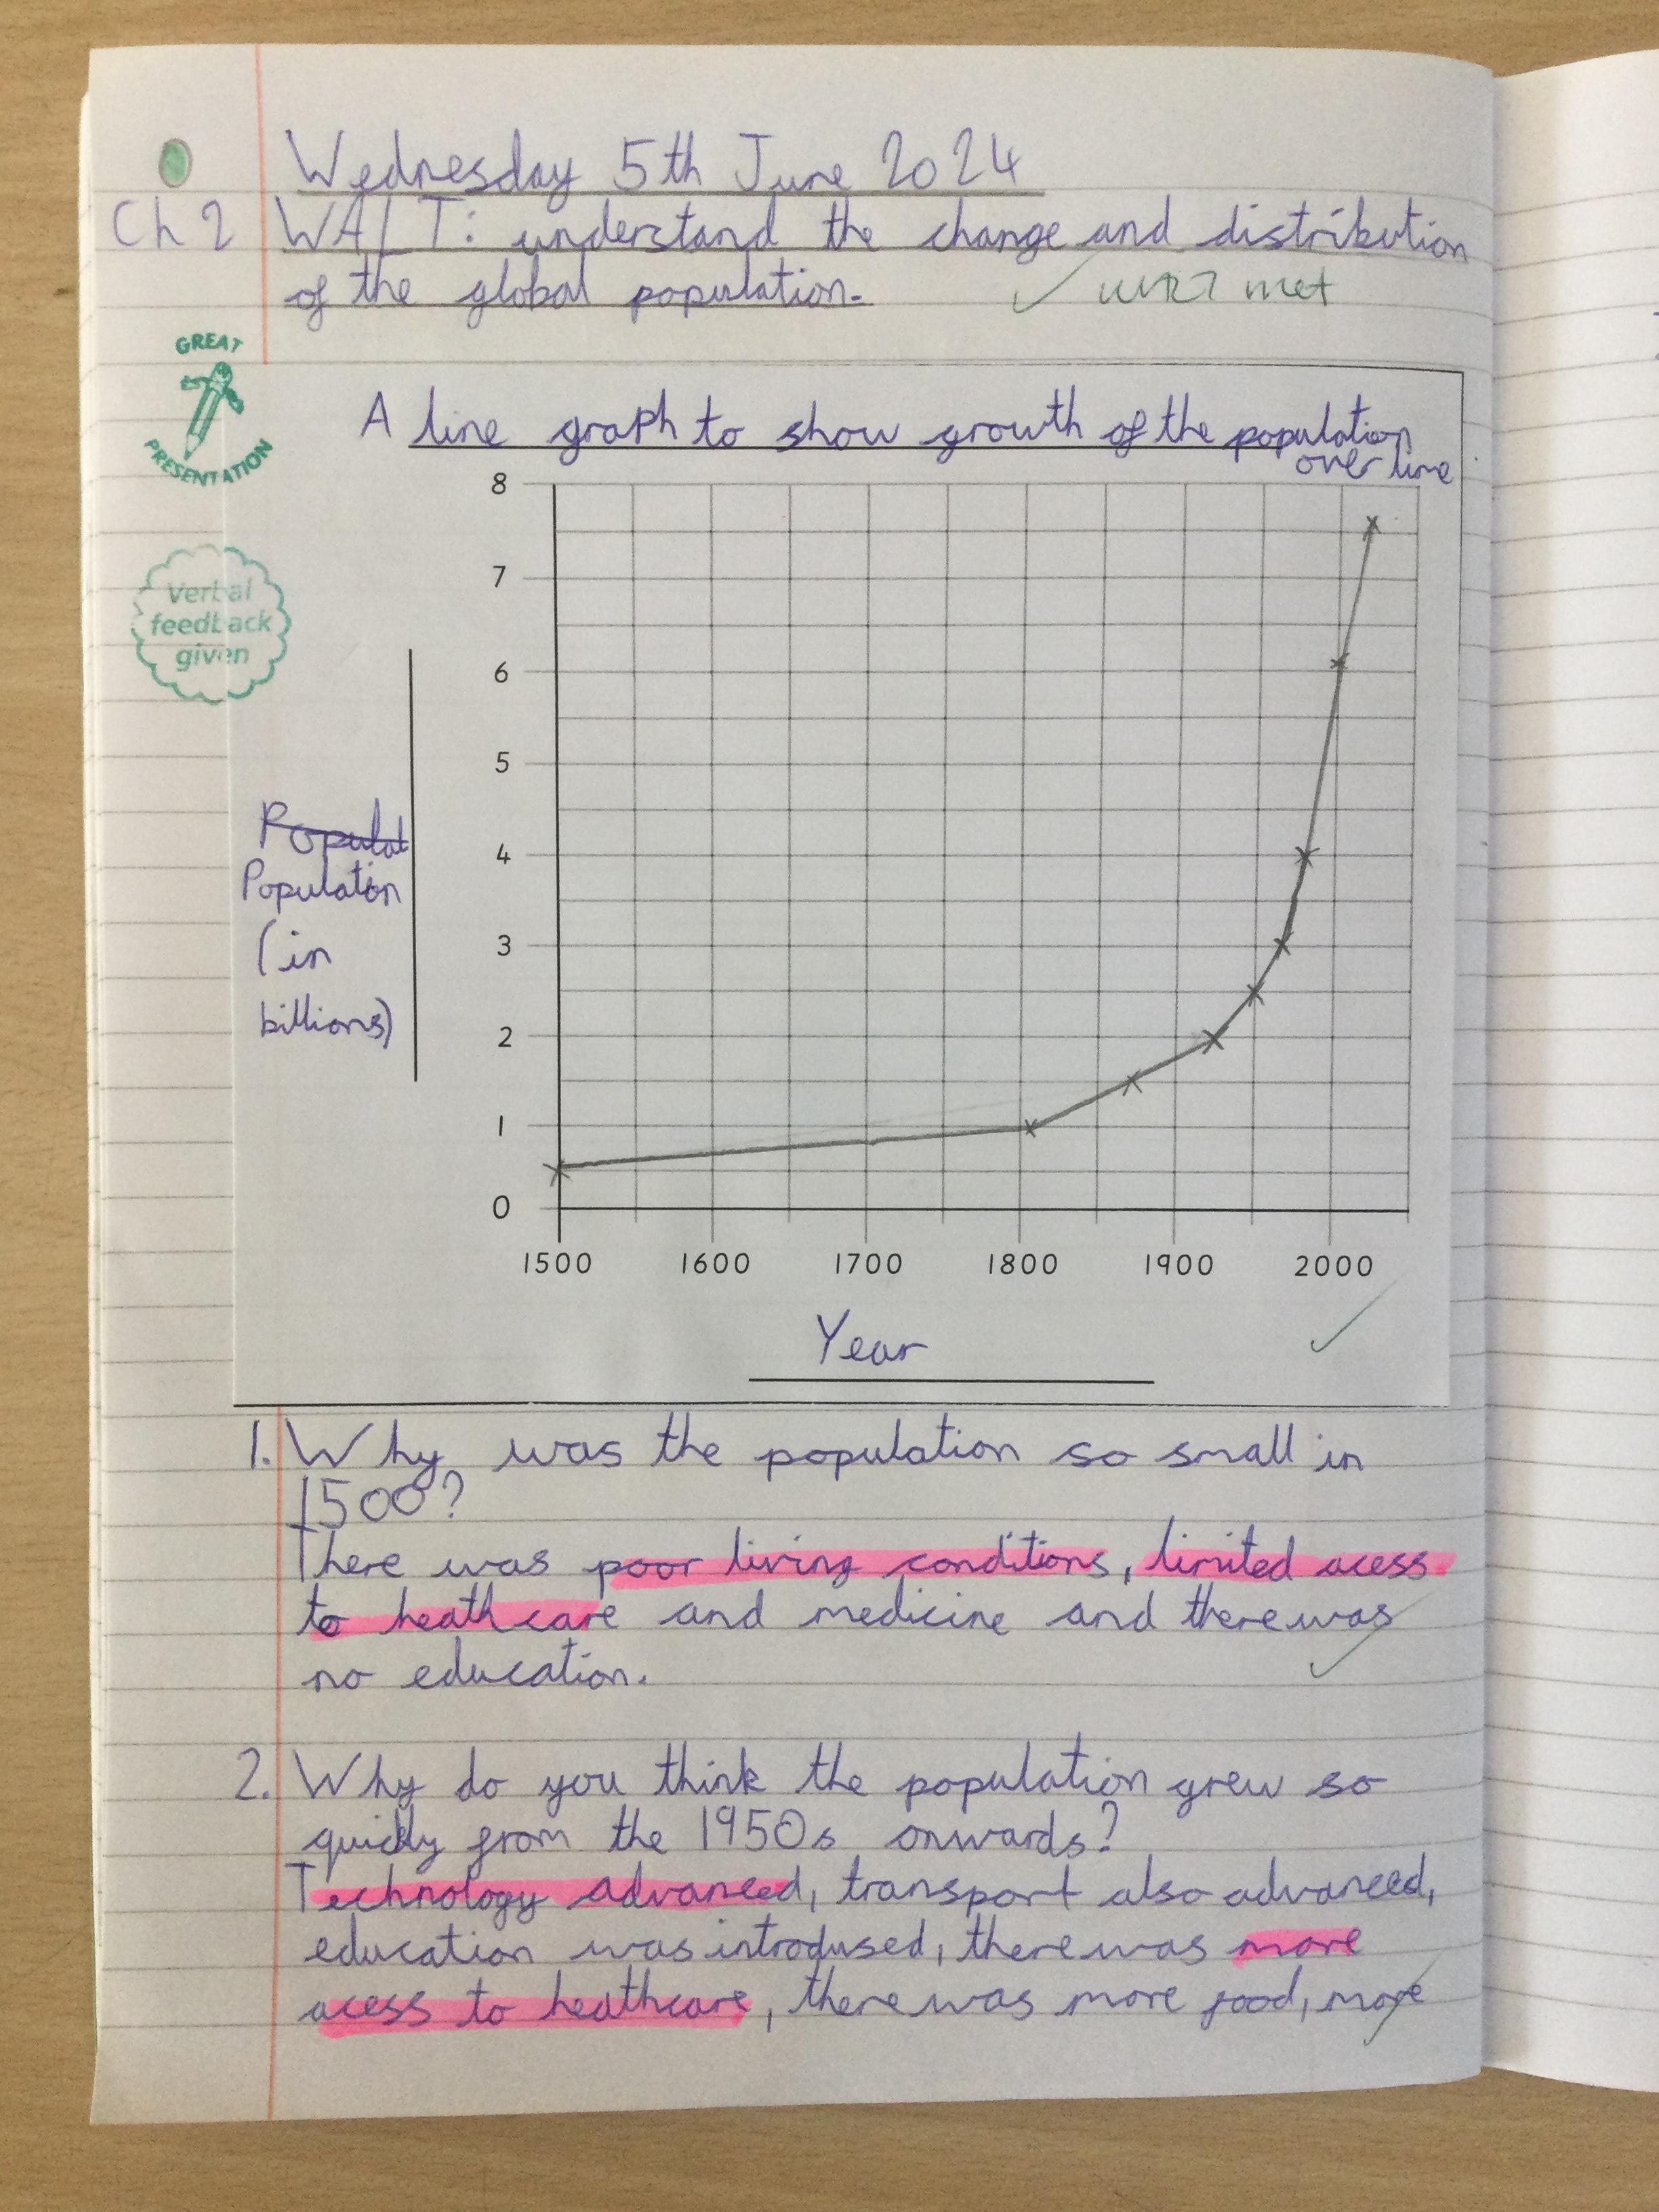 Wednesday 5th June 2024
Ch 2 WALT: understand the change and distribution
of the global population.
✓ WALT met
GREAT
PRESENTATION
Verbal
feedback
given
A line graph to show growth of the population
over time
8
7
6
5
4
3
2
1
0
Populat
Population
(in
billions)
1500 1600 1700 1800 1900 2000
Year
1. Why was the population so small in
1500?
There was poor living conditions, limited acess
to heath care and medicine and there was
no education.
2. Why do you think the population grew so
quickly from the 1950s onwards?
Technology advanced, transport also advanced,
education was introdused, there was more
acess to heathcare, there was more food, more